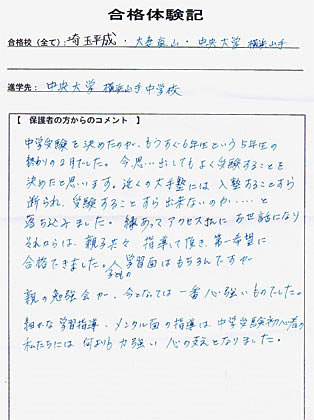 合格体験記
合格校（全て）：埼玉平成・大妻嵐山・中央大学横浜山手
進学先：中央大学横浜山手中学校
【 保護者の方からのコメント 】
中学受験を決めたのが、もうすぐ6年生という5年生の
終わりの2月でした。今思い出してもよく受験することを
決めたと思います。近くの大手塾には入塾することすら
断られ、受験することすら出来ないのか‥‥‥と
落ち込みました。縁あってアクセスさんにお世話になり
それからは、親子共々指導して頂き、第一希望に
合格できました。子どもの学習面はもちろんですが
親の勉強会が、今となっては一番心強いものでした。
細かな学習指導・メンタル面の指導は中学受験初心者の
私たちには何よりも力強い心の支えとなりました。